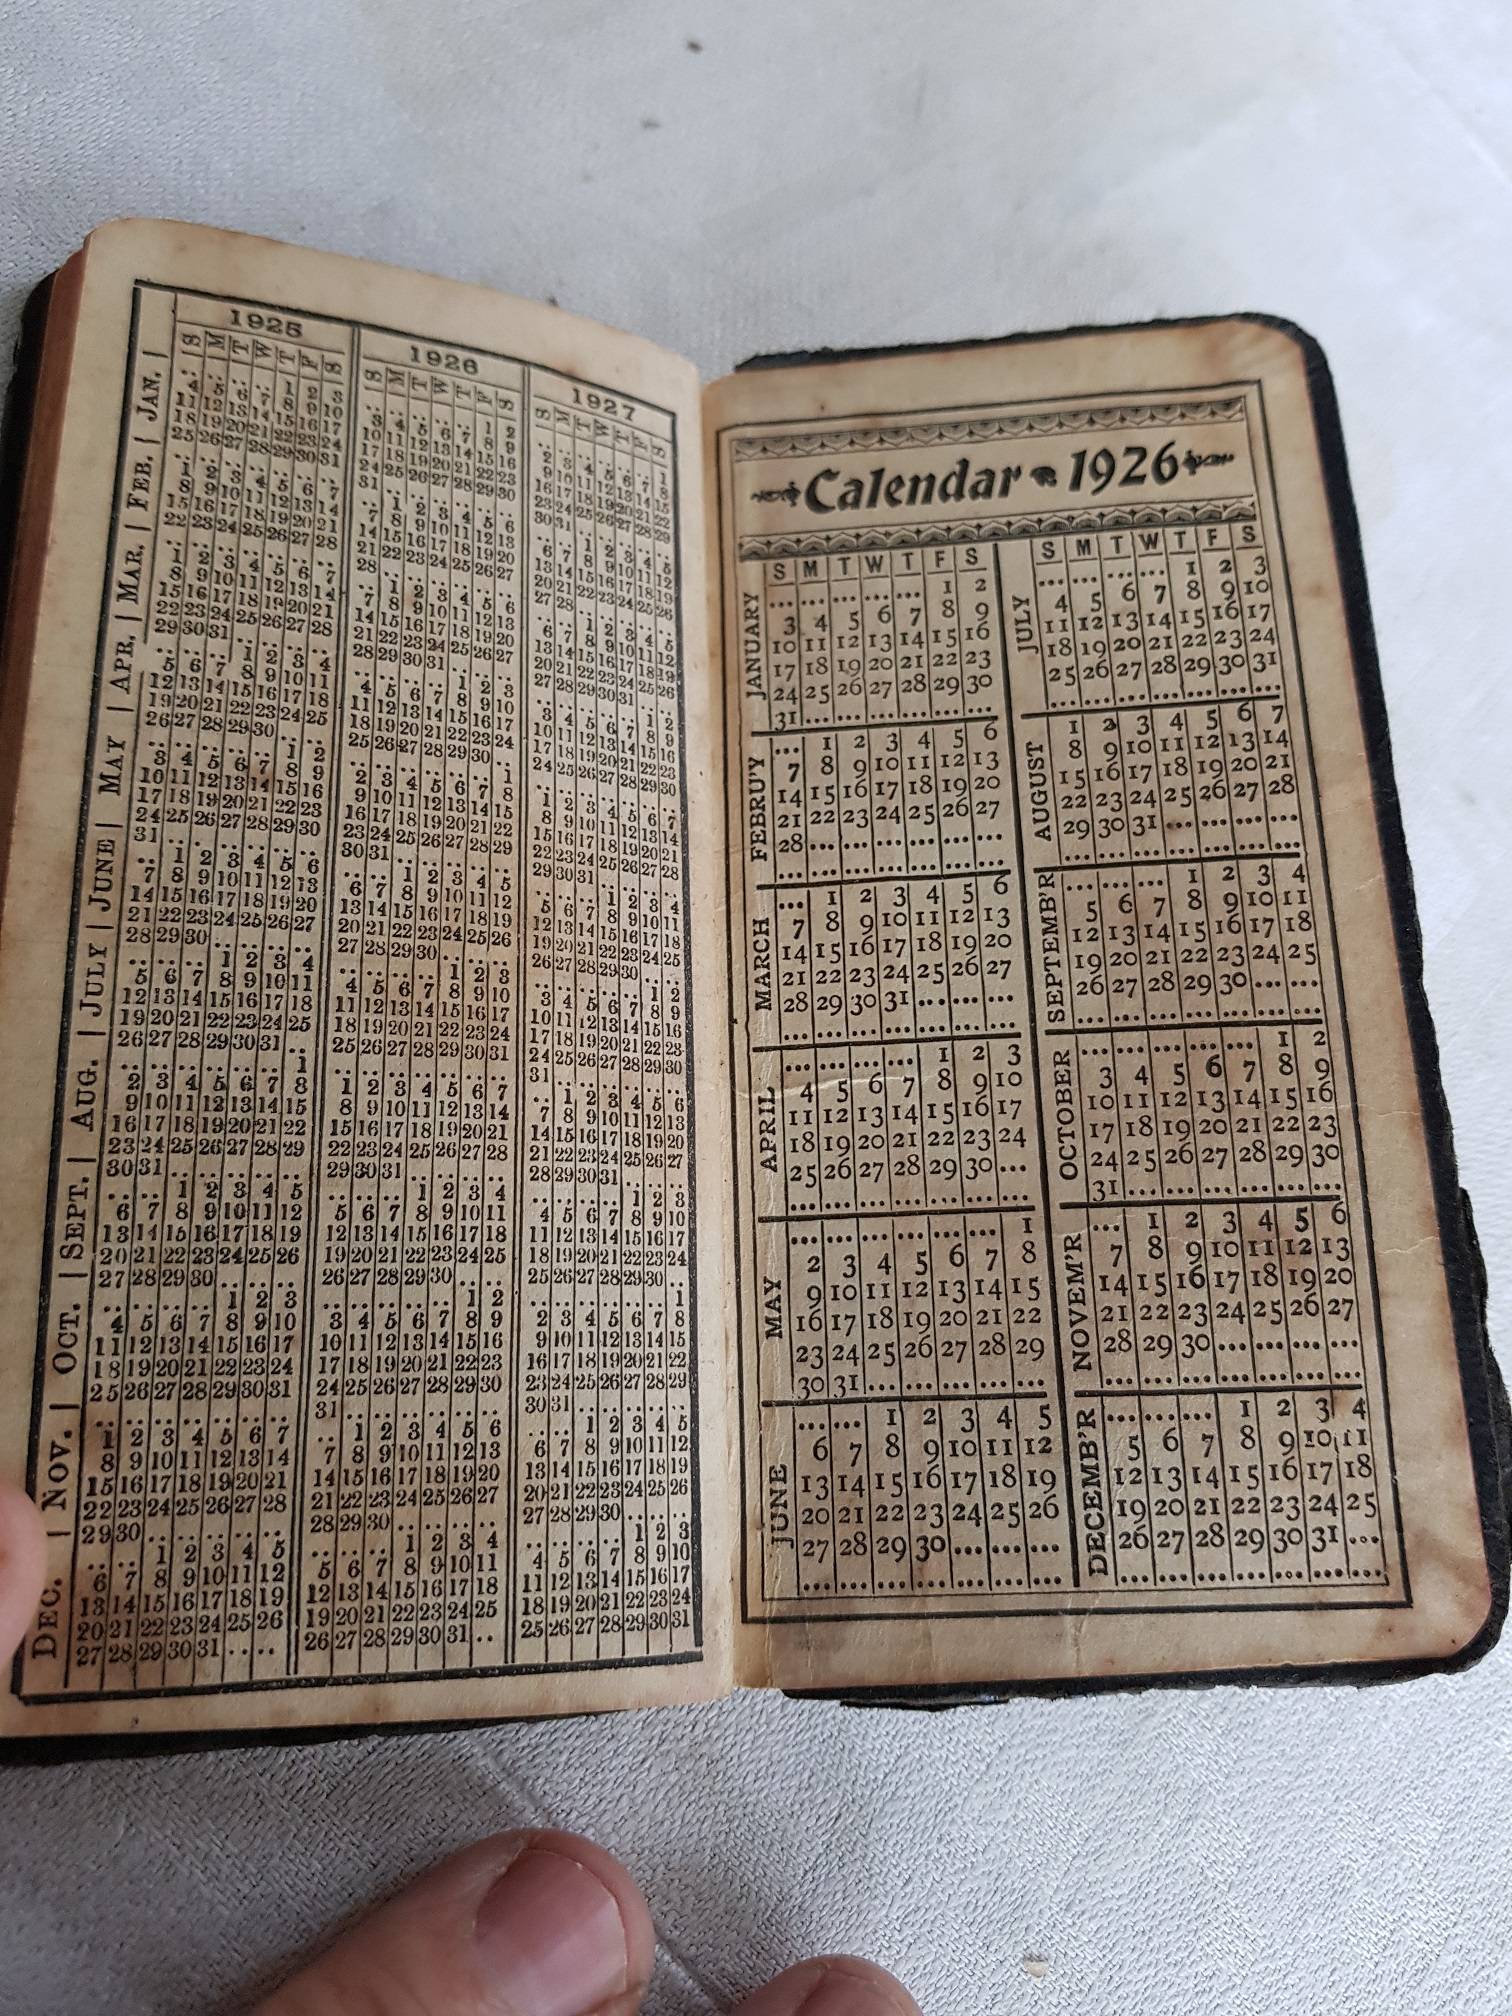 1925
S M T W T F S
JAN.
1 2 3
4 5 6 7 8 9 10
11 12 13 14 15 16 17
18 19 20 21 22 23 24
25 26 27 28 29 30 31
FEB.
1 2 3 4 5 6 7
8 9 10 11 12 13 14
15 16 17 18 19 20 21
22 23 24 25 26 27 28
MAR.
1 2 3 4 5 6 7
8 9 10 11 12 13 14
15 16 17 18 19 20 21
22 23 24 25 26 27 28
29 30 31
APR.
1 2 3 4
5 6 7 8 9 10 11
12 13 14 15 16 17 18
19 20 21 22 23 24 25
26 27 28 29 30
MAY
1 2
3 4 5 6 7 8 9
10 11 12 13 14 15 16
17 18 19 20 21 22 23
24 25 26 27 28 29 30
31
JUNE
1 2 3 4 5 6
7 8 9 10 11 12 13
14 15 16 17 18 19 20
21 22 23 24 25 26 27
28 29 30
JULY
1 2 3 4
5 6 7 8 9 10 11
12 13 14 15 16 17 18
19 20 21 22 23 24 25
26 27 28 29 30 31
AUG.
1
2 3 4 5 6 7 8
9 10 11 12 13 14 15
16 17 18 19 20 21 22
23 24 25 26 27 28 29
30 31
SEPT.
1 2 3 4 5
6 7 8 9 10 11 12
13 14 15 16 17 18 19
20 21 22 23 24 25 26
27 28 29 30
OCT.
1 2 3
4 5 6 7 8 9 10
11 12 13 14 15 16 17
18 19 20 21 22 23 24
25 26 27 28 29 30 31
NOV.
1 2 3 4 5 6 7
8 9 10 11 12 13 14
15 16 17 18 19 20 21
22 23 24 25 26 27 28
29 30
DEC.
1 2 3 4 5
6 7 8 9 10 11 12
13 14 15 16 17 18 19
20 21 22 23 24 25 26
27 28 29 30 31
1926
S M T W T F S
1 2
3 4 5 6 7 8 9
10 11 12 13 14 15 16
17 18 19 20 21 22 23
24 25 26 27 28 29 30
31
1 2 3 4 5 6
7 8 9 10 11 12 13
14 15 16 17 18 19 20
21 22 23 24 25 26 27
28
1 2 3 4 5 6
7 8 9 10 11 12 13
14 15 16 17 18 19 20
21 22 23 24 25 26 27
28 29 30 31
1 2 3
4 5 6 7 8 9 10
11 12 13 14 15 16 17
18 19 20 21 22 23 24
25 26 27 28 29 30
1
2 3 4 5 6 7 8
9 10 11 12 13 14 15
16 17 18 19 20 21 22
23 24 25 26 27 28 29
30 31
1 2 3 4 5
6 7 8 9 10 11 12
13 14 15 16 17 18 19
20 21 22 23 24 25 26
27 28 29 30
1 2 3
4 5 6 7 8 9 10
11 12 13 14 15 16 17
18 19 20 21 22 23 24
25 26 27 28 29 30 31
1 2 3 4 5 6 7
8 9 10 11 12 13 14
15 16 17 18 19 20 21
22 23 24 25 26 27 28
29 30 31
1 2 3 4
5 6 7 8 9 10 11
12 13 14 15 16 17 18
19 20 21 22 23 24 25
26 27 28 29 30
1 2
3 4 5 6 7 8 9
10 11 12 13 14 15 16
17 18 19 20 21 22 23
24 25 26 27 28 29 30
31
1 2 3 4 5 6
7 8 9 10 11 12 13
14 15 16 17 18 19 20
21 22 23 24 25 26 27
28 29 30
1 2 3 4
5 6 7 8 9 10 11
12 13 14 15 16 17 18
19 20 21 22 23 24 25
26 27 28 29 30 31
1927
S M T W T F S
1
2 3 4 5 6 7 8
9 10 11 12 13 14 15
16 17 18 19 20 21 22
23 24 25 26 27 28 29
30 31
1 2 3 4 5
6 7 8 9 10 11 12
13 14 15 16 17 18 19
20 21 22 23 24 25 26
27 28
1 2 3 4 5
6 7 8 9 10 11 12
13 14 15 16 17 18 19
20 21 22 23 24 25 26
27 28 29 30 31
1 2
3 4 5 6 7 8 9
10 11 12 13 14 15 16
17 18 19 20 21 22 23
24 25 26 27 28 29 30
1 2 3 4 5 6 7
8 9 10 11 12 13 14
15 16 17 18 19 20 21
22 23 24 25 26 27 28
29 30 31
1 2 3 4
5 6 7 8 9 10 11
12 13 14 15 16 17 18
19 20 21 22 23 24 25
26 27 28 29 30
1 2
3 4 5 6 7 8 9
10 11 12 13 14 15 16
17 18 19 20 21 22 23
24 25 26 27 28 29 30
31
1 2 3 4 5 6
7 8 9 10 11 12 13
14 15 16 17 18 19 20
21 22 23 24 25 26 27
28 29 30 31
1 2 3
4 5 6 7 8 9 10
11 12 13 14 15 16 17
18 19 20 21 22 23 24
25 26 27 28 29 30
1
2 3 4 5 6 7 8
9 10 11 12 13 14 15
16 17 18 19 20 21 22
23 24 25 26 27 28 29
30 31
1 2 3 4 5
6 7 8 9 10 11 12
13 14 15 16 17 18 19
20 21 22 23 24 25 26
27 28 29 30
1 2 3
4 5 6 7 8 9 10
11 12 13 14 15 16 17
18 19 20 21 22 23 24
25 26 27 28 29 30 31
Calendar 1926
S M T W T F S
JANUARY
1 2
3 4 5 6 7 8 9
10 11 12 13 14 15 16
17 18 19 20 21 22 23
24 25 26 27 28 29 30
31
FEBRU'Y
1 2 3 4 5 6
7 8 9 10 11 12 13
14 15 16 17 18 19 20
21 22 23 24 25 26 27
28
MARCH
1 2 3 4 5 6
7 8 9 10 11 12 13
14 15 16 17 18 19 20
21 22 23 24 25 26 27
28 29 30 31
APRIL
1 2 3
4 5 6 7 8 9 10
11 12 13 14 15 16 17
18 19 20 21 22 23 24
25 26 27 28 29 30
MAY
1
2 3 4 5 6 7 8
9 10 11 12 13 14 15
16 17 18 19 20 21 22
23 24 25 26 27 28 29
30 31
JUNE
1 2 3 4 5
6 7 8 9 10 11 12
13 14 15 16 17 18 19
20 21 22 23 24 25 26
27 28 29 30
S M T W T F S
JULY
1 2 3
4 5 6 7 8 9 10
11 12 13 14 15 16 17
18 19 20 21 22 23 24
25 26 27 28 29 30 31
AUGUST
1 2 3 4 5 6 7
8 9 10 11 12 13 14
15 16 17 18 19 20 21
22 23 24 25 26 27 28
29 30 31
SEPTEMB'R
1 2 3 4
5 6 7 8 9 10 11
12 13 14 15 16 17 18
19 20 21 22 23 24 25
26 27 28 29 30
OCTOBER
1 2
3 4 5 6 7 8 9
10 11 12 13 14 15 16
17 18 19 20 21 22 23
24 25 26 27 28 29 30
31
NOVEM'R
1 2 3 4 5 6
7 8 9 10 11 12 13
14 15 16 17 18 19 20
21 22 23 24 25 26 27
28 29 30
DECEMB'R
1 2 3 4
5 6 7 8 9 10 11
12 13 14 15 16 17 18
19 20 21 22 23 24 25
26 27 28 29 30 31